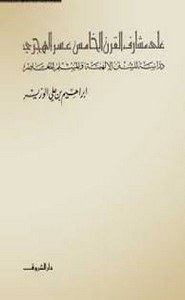 على مشارف القرن الخامس عشر الهجري
دراسة للسنن الإلهية والمسلم المعاصر
ابراهيم بن علي الوزير
دار الشروق